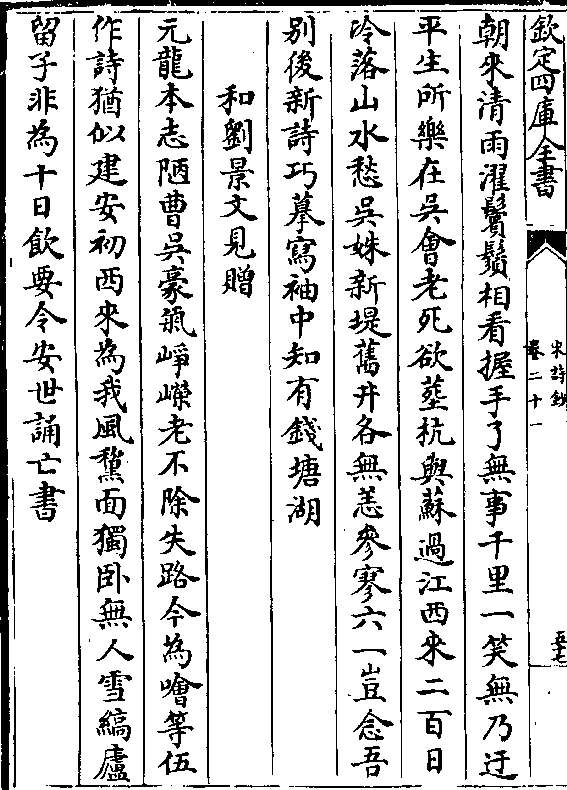 欽定四庫全書
宋詩鈔
卷二十一
五十七
朝來清雨濯鬢鬚相看握手了無事千里一笑無乃迂
平生所樂在吳會老死欲塟杭與蘇過江西來二百日
冷落山水愁吳姝新堤舊井各無恙參寥六一豈念吾
别後新詩巧摹寫袖中知有錢塘湖
和劉景文見贈
元龍本志陋曹吳豪氣崢嶸老不除失路今為噲等伍
作詩猶似建安初西來為我風黧面獨卧無人雪縞廬
留子非為十日飲要令安世誦亡書